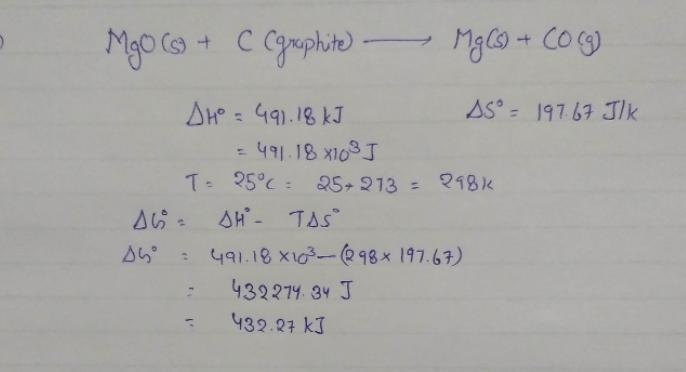 )
MgO(s) + C (graphite) ⟶ Mg(s) + CO(g)
ΔH° = 491.18 kJ ΔS° = 197.67 J/k
= 491.18 ×10³ J
T = 25°C = 25+273 = 298k
ΔG° = ΔH° - TΔS°
ΔG° = 491.18 ×10³ — (298 × 197.67)
= 432274.34 J
= 432.27 kJ